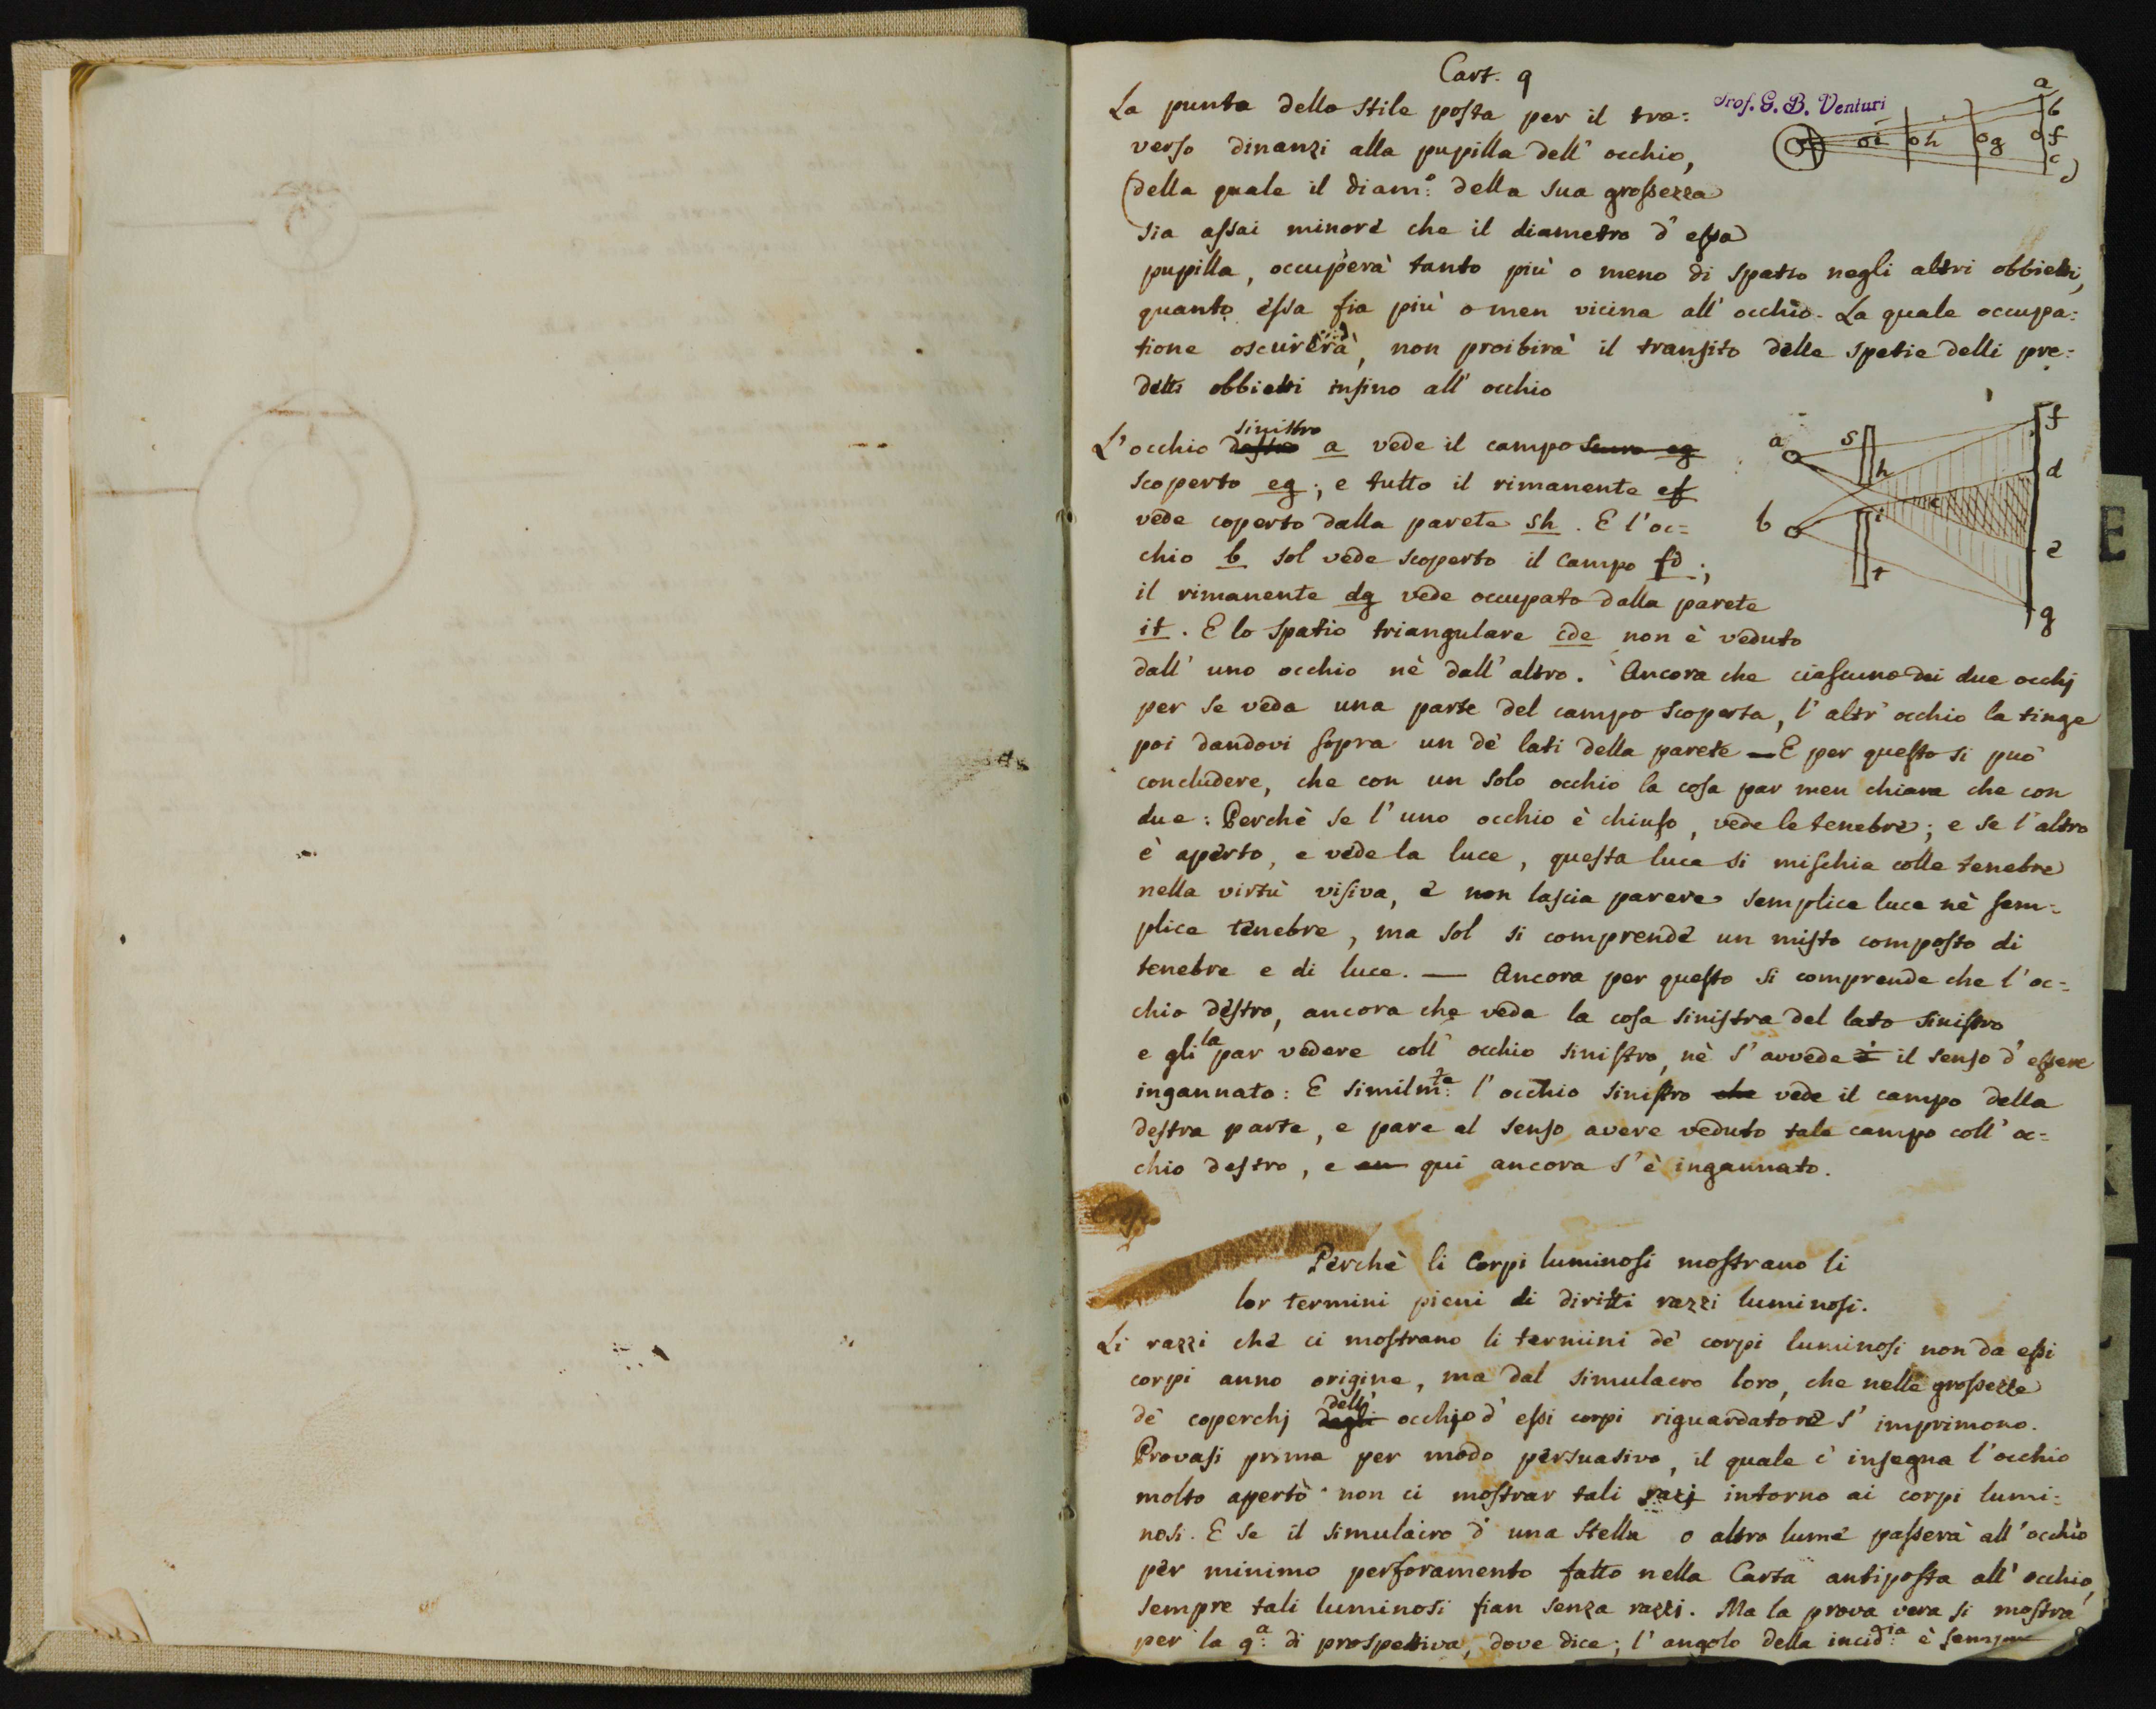 Cart. 9
Prof. G. B. Venturi
La punta dello stile posta per il tra:
verso dinanzi alla pupilla dell' occhio,
(della quale il diam:º della sua grossezza
sia assai minore che il diametro d' essa
pupilla, occuperà tanto più o meno di spatio negli altri obbietti,
quanto essa fia più o men vicina all' occhio. La quale occupa:
tione oscurerà, non proibirà il transito delle spetie delli pre:
detti obbietti insino all' occhio
a
b
f
c
d
o i o h o g o
L' occhio destro sinistro a vede il campo scuro eg
scoperto eg; e tutto il rimanente ef
vede coperto dalla parete sh. E l' oc=
chio b sol vede scoperto il campo fd;
il rimanente dg vede occupato dalla parete
it. E lo spatio triangulare cde non è veduto
a s h f d
b i t c e g
dall' uno occhio nè dall' altro. Ancora che ciascuno dei due occhj
per se veda una parte del campo scoperta, l' altr' occhio la tinge
poi dandovi sopra un de' lati della parete — E per questo si può
concludere, che con un solo occhio la cosa par men chiara che con
due: Perchè se l' uno occhio è chiuso, vede le tenebre; e se l' altro
è aperto, e vede la luce, questa luce si mischia colle tenebre
nella virtù visiva, e non lascia parere semplice luce nè sem=
plice tenebre, ma sol si comprende un misto composto di
tenebre e di luce. — Ancora per questo si comprende che l' oc=
chio destro, ancora che veda la cosa sinistra del lato sinistro
e gli la par vedere coll' occhio sinistro, nè s' avvede è il senso d' essere
ingannato: E similm:te l' occhio sinistro che vede il campo della
destra parte, e pare al senso avere veduto tale campo coll' oc=
chio destro, e an qui ancora s' è ingannato.
Perchè li Corpi luminosi mostrano li
lor termini pieni di diritti razzi luminosi.
Li razzi che ci mostrano li termini de' corpi luminosi non da essi
corpi anno origine, ma dal simulacro loro, che nelle grossezze
de' coperchj degli delli occhj d' essi corpi riguardatore s' imprimono.
Provasi prima per modo persuasivo, il quale c' insegna l' occhio
molto aperto non ci mostrar tali razj intorno ai corpi lumi:
nosi. E se il simulacro d' una stella o altro lume passerà all' occhio
per minimo perforamento fatto nella Carta antiposta all' occhio,
sempre tali luminosi fian senza razzi. Ma la prova vera si mostra
per la 9:a di prospettiva, dove dice; l' angolo della incid:ia è sempre